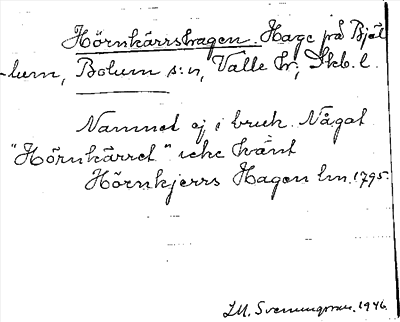 Hörnkärrshagen. Hage på Bjäl
-lum, Bolum s:n, Valle hr, Skb. l.
Namnet ej i bruk. Något
"Hörnkärret" icke känt
Hörnkjerrs Hagen lm. 1795.
1946.